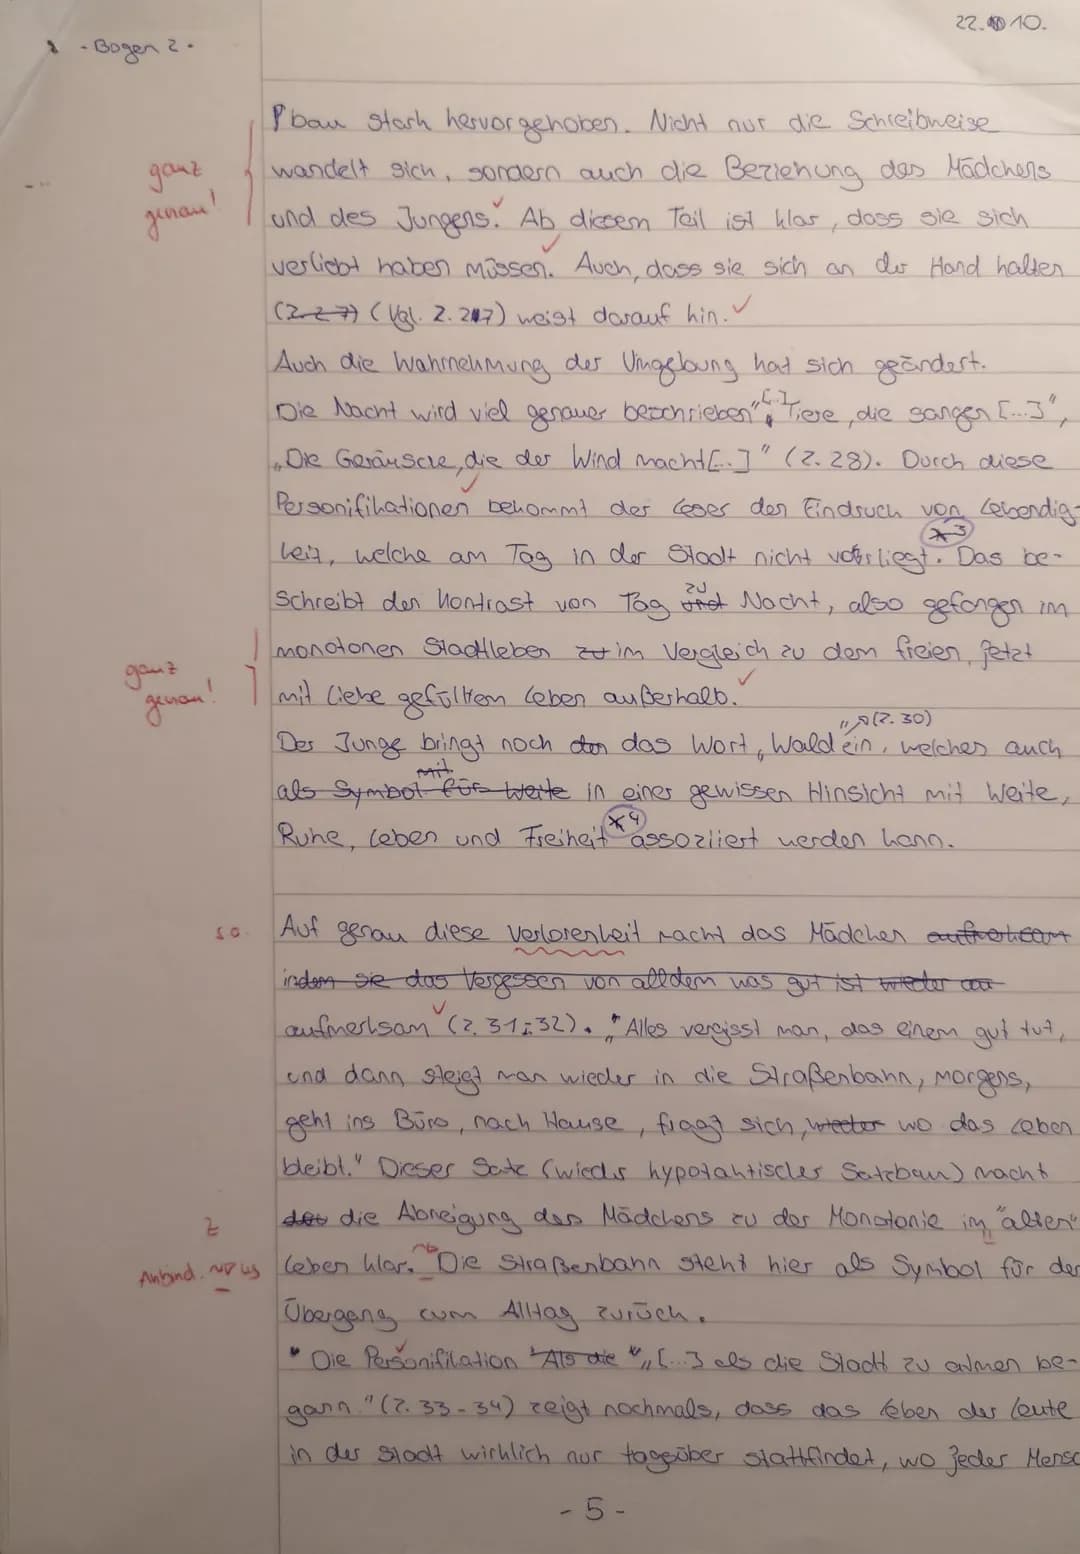 22. 10.
- Bogen 2 -
bau stark hervorgehoben. Nicht nur die Schreibweise
ganz genau!
wandelt sich, sondern auch die Beziehung des Mädchens
und des Jungens. Ab diesem Teil ist klar, dass sie sich
verliebt haben müssen. Auch, dass sie sich an der Hand halten
(Z. 27) (Vgl. Z. 27) weist darauf hin.
Auch die Wahrnehmung der Umgebung hat sich geändert.
Die Nacht wird viel genauer beschrieben „[..] Tiere, die sangen [...]",
„Die Geräusche, die der Wind macht[..]" (Z. 28). Durch diese
Personifikationen bekommt der Leser den Eindruck von Lebendig-
*3
keit, welche am Tag in der Stadt nicht vorliegt. Das be-
schreibt den Kontrast von Tag und zu Nacht, also gefangen im
monotonen Stadtleben zu im Vergleich zu dem freien, jetzt
ganz genau!
mit Liebe gefülltem Leben außerhalb.
Der Junge bringt noch den das Wort „Wald" (Z. 30) ein, welches auch
als Symbol für Weite mit in einer gewissen Hinsicht mit Weite,
Ruhe, Leben und Freiheit *4 assoziiert werden kann.
s.o.
Auf genau diese Verlorenheit macht das Mädchen aufmerksam
indem sie das Vergessen von alldem was gut ist wieder
aufmerksam (Z. 31-32). „Alles vergisst man, das einem gut tut,
und dann steigt man wieder in die Straßenbahn, morgens,
geht ins Büro, nach Hause, fragt sich, wieder wo das Leben
bleibt." Dieser Satz (wieder hypotaktischer Satzbau) macht
Z
die Abneigung des Mädchens zu der Monotonie im "alten"
Anbind.
Leben klar. Die Straßenbahn steht hier als Symbol für den
Übergang zum Alltag zurück.
Die Personifikation Als die „[...] als die Stadt zu atmen be-
gann." (Z. 33-34) zeigt nochmals, dass das Leben der Leute
in der Stadt wirklich nur tagsüber stattfindet, wo jeder Mensc
- 5 -